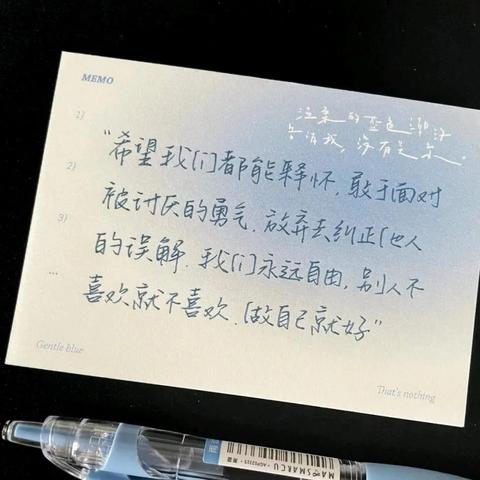 MEMO
温柔的蓝色潮汐
告诉我,没有关系.
1)
"希望我们都能释怀,敢于面对
2)
被讨厌的勇气.放弃去纠正他人
3)
的误解.我们永远自由,别人不
...
喜欢就不喜欢.做自己就好"
Gentle blue
That's nothing
MARSMARCU